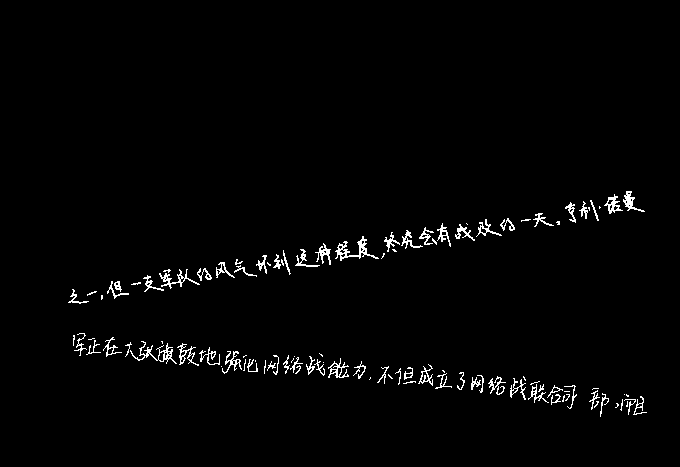 之一,但一支军队的风气坏到这种程度,终究会有战败的一天。亨利·诺曼
军正在大张旗鼓地强化网络战能力,不但成立了网络战联合司 部,而且